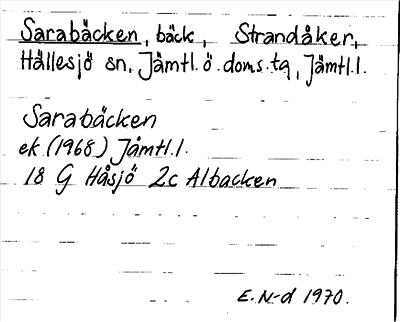 Sarabäcken, bäck, Strandåker,
Hällesjö sn, Jämtl.ö.doms.tg, Jämtl.l.
Sarabäcken
ek (1968) Jämtl.l.
18 G Håsjö 2c Albacken
E. N-d 1970.